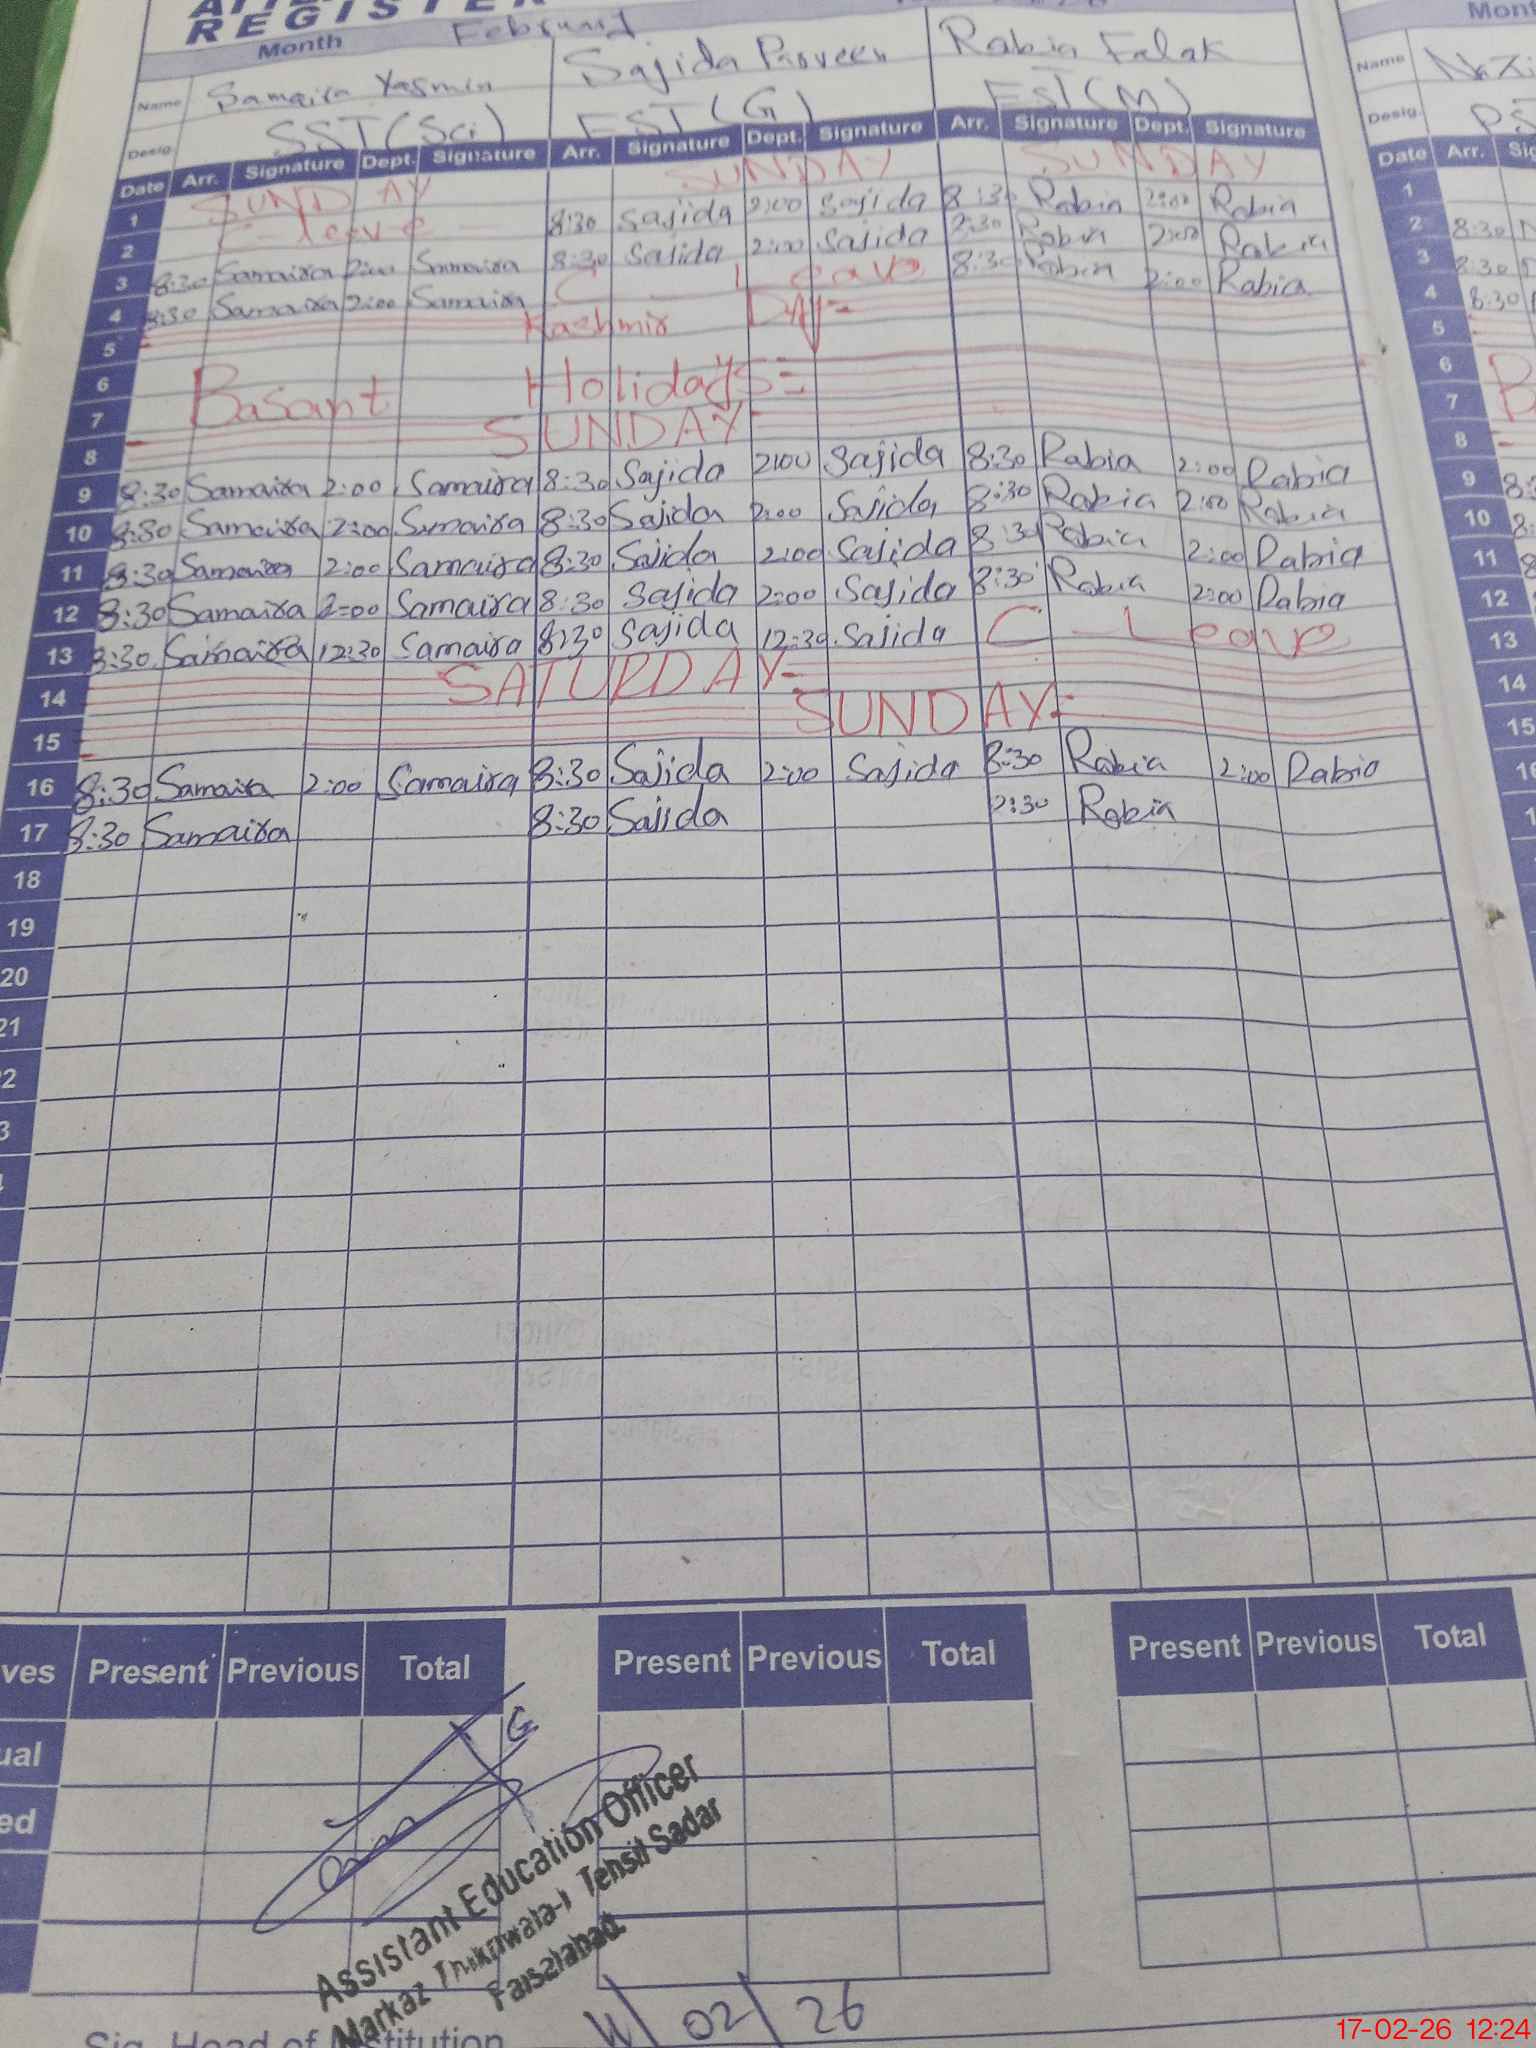 REGISTER
Month February
Name Samaira Yasmin Sajida Parveen Rabia Falak Name
Desig. SST (Sci) EST (G) EST (M) Desig.
Date Arr. Signature Dept. Signature Arr. Signature Dept. Signature Arr. Signature Dept. Signature Date Arr.
1 SUNDAY SUNDAY SUNDAY 1
2 C-leave 8:30 Sajida 2:00 Sajida 8:30 Rabia 2:00 Rabia 2 8:30
3 8:30 Samaira 2:00 Samaira 8:30 Sajida 2:00 Sajida 8:30 Rabia 2:00 Rabia 3 8:30
4 8:30 Samaira 2:00 Samaira C - Leave 8:30 Rabia 2:00 Rabia 4 8:30
5 Kashmir Day 5
6 Basant Holidays 6
7 7
8 SUNDAY 8
9 8:30 Samaira 2:00 Samaira 8:30 Sajida 2:00 Sajida 8:30 Rabia 2:00 Rabia 9
10 8:30 Samaira 2:00 Samaira 8:30 Sajida 2:00 Sajida 8:30 Rabia 2:00 Rabia 10
11 8:30 Samaira 2:00 Samaira 8:30 Sajida 2:00 Sajida 8:30 Rabia 2:00 Rabia 11
12 8:30 Samaira 2:00 Samaira 8:30 Sajida 2:00 Sajida 8:30 Rabia 2:00 Rabia 12
13 8:30 Samaira 12:30 Samaira 8:30 Sajida 12:30 Sajida C-Leave 13
14 SATURDAY 14
15 SUNDAY 15
16 8:30 Samaira 2:00 Samaira 8:30 Sajida 2:00 Sajida 8:30 Rabia 2:00 Rabia
17 8:30 Samaira 8:30 Sajida Rabia
18
19
20
21
ves Present Previous Total Present Previous Total Present Previous Total
ual
ed
Assistant Education Officer
Markaz Tehsil Sadar
Faisalabad
Sig. Head of Institution
02/26
17-02-26 12:24